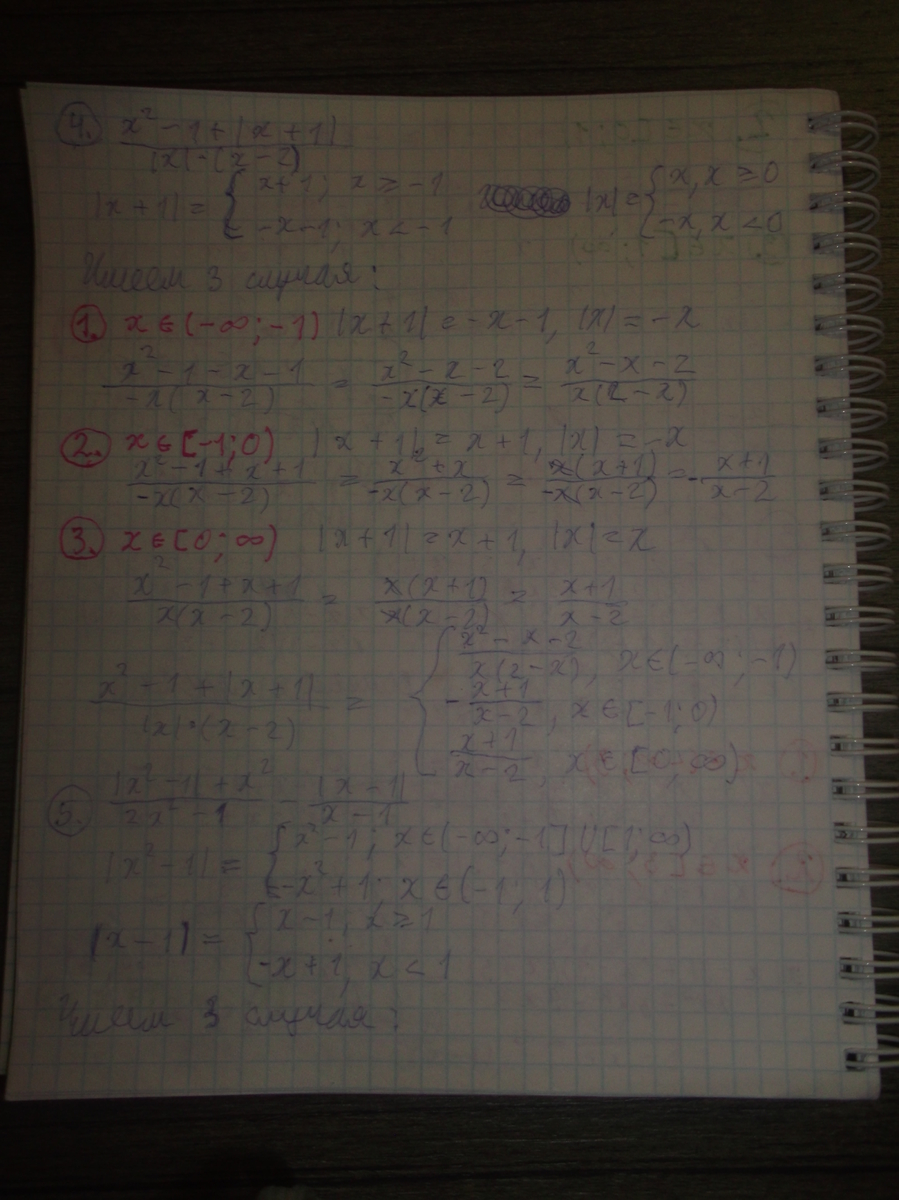 4. (x² - 1 + |x + 1|) / (|x| · (x - 2))
|x + 1| = { x + 1; x ≥ -1    |x| = { x, x ≥ 0
-x - 1; x < -1    -x, x < 0
Имеем 3 случая:
1. x ∈ (-∞; -1) |x + 1| = -x - 1, |x| = -x
(x² - 1 - x - 1) / (-x(x - 2)) = (x² - x - 2) / (-x(x - 2)) = (x² - x - 2) / (x(2 - x))
2. x ∈ [-1; 0) |x + 1| = x + 1, |x| = -x
(x² - 1 + x + 1) / (-x(x - 2)) = (x² + x) / (-x(x - 2)) = (x(x + 1)) / (-x(x - 2)) = - (x + 1) / (x - 2)
3. x ∈ [0; ∞) |x + 1| = x + 1, |x| = x
(x² - 1 + x + 1) / (x(x - 2)) = (x(x + 1)) / (x(x - 2)) = (x + 1) / (x - 2)
(x² - 1 + |x + 1|) / (|x| · (x - 2)) = { (x² - x - 2) / (x(2 - x)), x ∈ (-∞; -1)
- (x + 1) / (x - 2), x ∈ [-1; 0)
(x + 1) / (x - 2), x ∈ [0; ∞)
5. (|x² - 1| + x²) / (2x² - 1) - |x - 1| / (x - 1)
|x² - 1| = { x² - 1; x ∈ (-∞; -1] ∪ [1; ∞)
-x² + 1; x ∈ (-1; 1)
|x - 1| = { x - 1, x ≥ 1
-x + 1, x < 1
Имеем 3 случая: